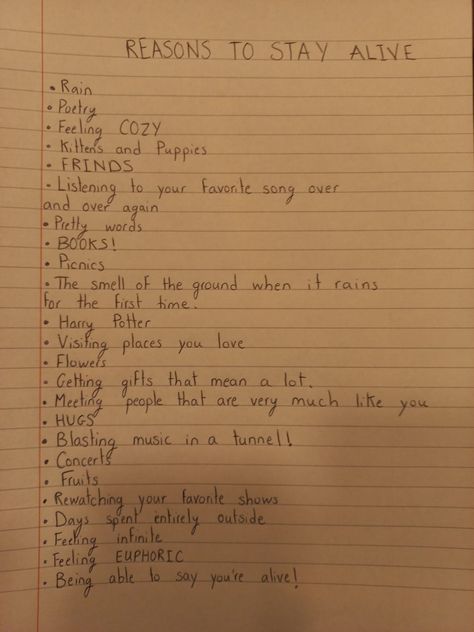 REASONS TO STAY ALIVE
• Rain
• Poetry
• Feeling COZY
• Kittens and Puppies
• FRINDS
• Listening to your favorite song over
and over again
• Pretty words
• BOOKS!
• Picnics
• The smell of the ground when it rains
for the first time.
• Harry Potter
• Visiting places you love
• Flowers
• Getting gifts that mean a lot.
• Meeting people that are very much like you
• HUGS
• Blasting music in a tunnel!
• Concerts
• Fruits
• Rewatching your favorite shows
• Days spent entirely outside
• Feeling infinite
• Feeling EUPHORIC
• Being able to say you're alive!